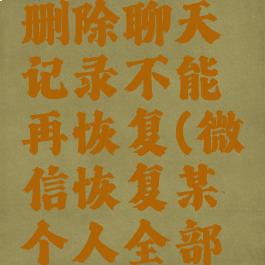 删除聊天
记录不能
再恢复(微
信恢复某
个人全部